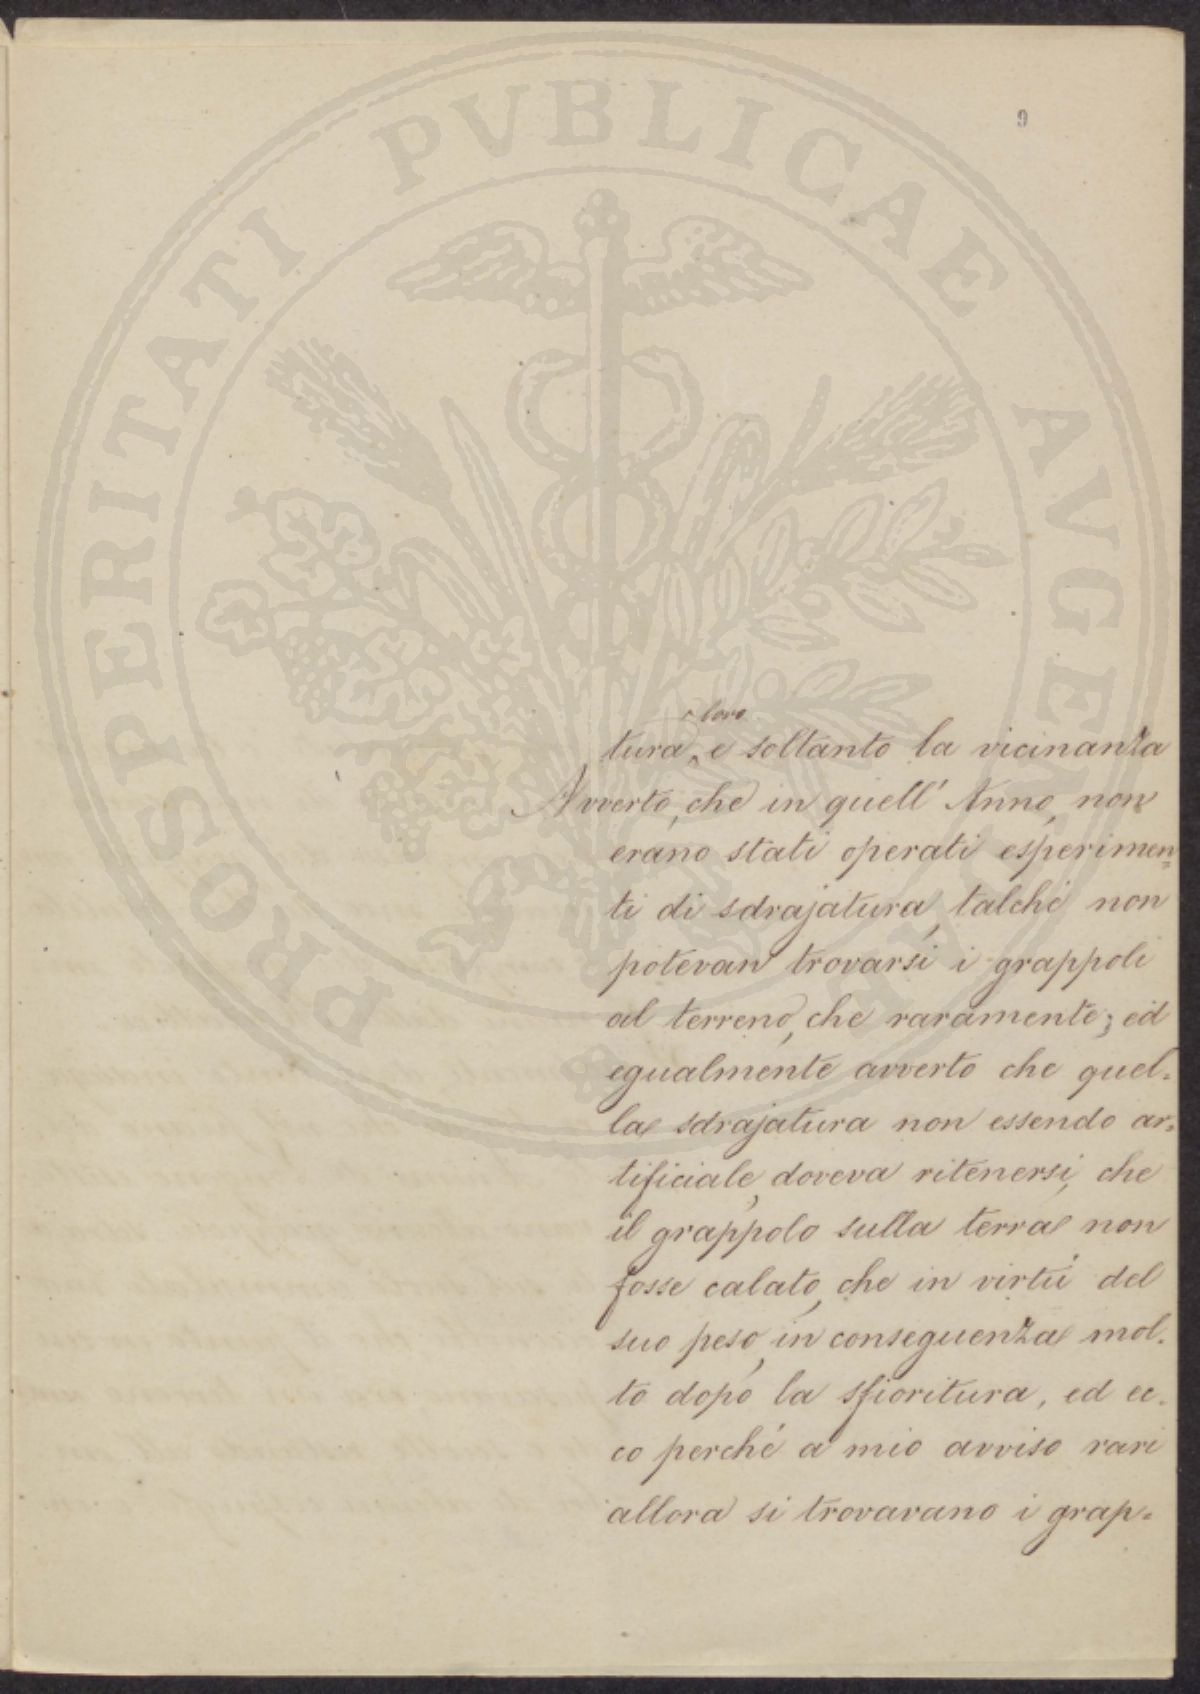 9
PROSPERITATI PVBLICAE AVGENDAE
loro
tura, e soltanto la vicinanza
Avverto, che in quell' Anno, non
erano stati operati esperimen=
ti di sdrajatura, talchè non
potevan trovarsi i grappoli
al terreno, che raramente; ed
egualmente avverto che quel-
la sdrajatura non essendo ar-
tificiale, doveva ritenersi, che
il grappolo sulla terra non
fosse calato, che in virtù del
suo peso, in conseguenza mol-
to dopo la sfioritura, ed ec-
co perchè a mio avviso rari
allora si trovavano i grap-